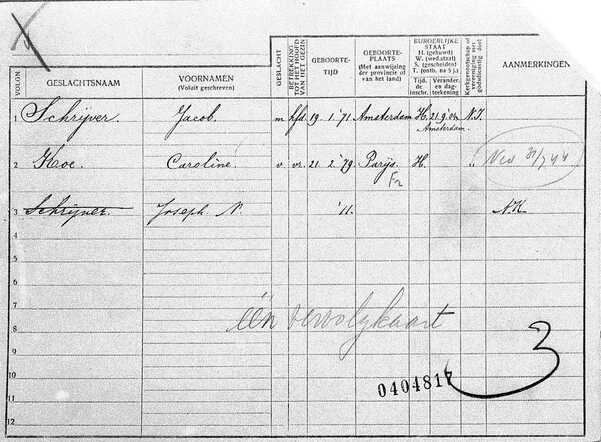 VOLGN.
GESLACHTSNAAM
VOORNAMEN
(Voluit geschreven)
GESLACHT
BETREKKING
TOT HET HOOFD
VAN HET GEZIN
GEBOORTE-
TIJD
GEBOORTE-
PLAATS
(Met aanwijzing
der provincie of
van het land)
BURGERLIJKE
STAAT
H. (gehuwd)
W. (wed.staat)
S. (gescheiden)
T. (ontb. na 5 j.)
Tijd.
de
inschr.
Verander.
en dag-
teekening
Kerkgenootschap of
vereeniging met
godsdienstig doel
AANMERKINGEN
1 Schrijver. Jacob. m hfd 19 1 '71 Amsterdam H. 21.9.'04 N.I.
Amsterdam.
2 Kroe. Caroline v vr. 21. 2.'79 Parijs. H. " Ned 31/7 44
Fr
3 Schrijver. Joseph N. '11. N.K
4
5
6
7
één vervolgkaart
8
9
10 3
0404817
11
12